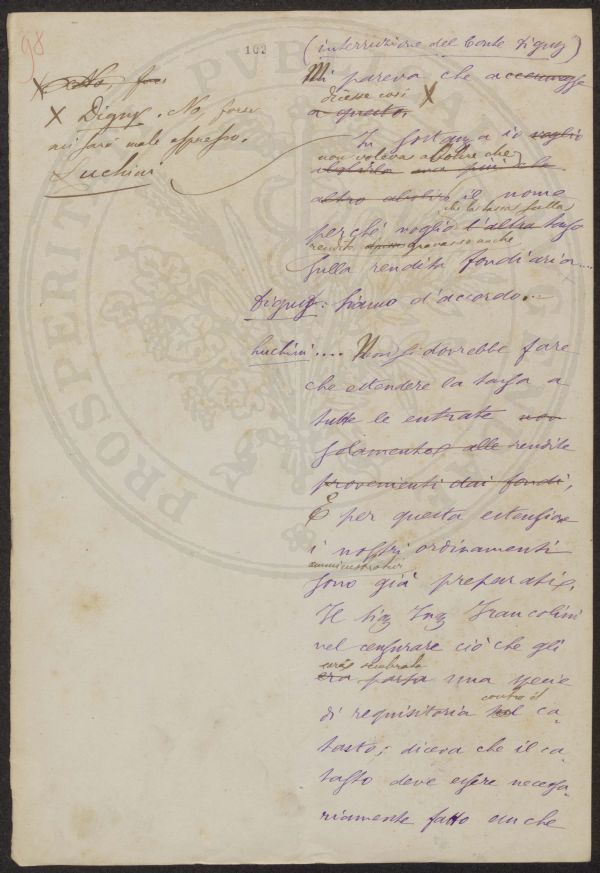 98
102
(interruzione del Conte Digny)
Mi pareva che accennasse
dicesse così X
a questo.
X Digny. No, forse
mi sarò male espresso.
Luchini
In sostanza io voglio
non volevas abolire che
altro abolire il nome
perché voglio l'altra tassa
gravasse anche
sulla rendita fondiaria....
Digny: Siamo d'accordo...
Luchini.... Non si dovrebbe fare
che estendere la tassa a
tutte le entrate non
solamente alle rendite
provenienti dai fondi,
E per questa estensione
i nostri ordinamenti
amministrativi
sono già preparati.
Il Sig Ing Francolini
nel censurare ciò che gli
era sembrata
era parsa una specie
di requisitoria contro il ca-
tasto, diceva che il ca-
tasto deve essere necessa-
riamente fatto anche
PROSPERITATI PVBLICAE